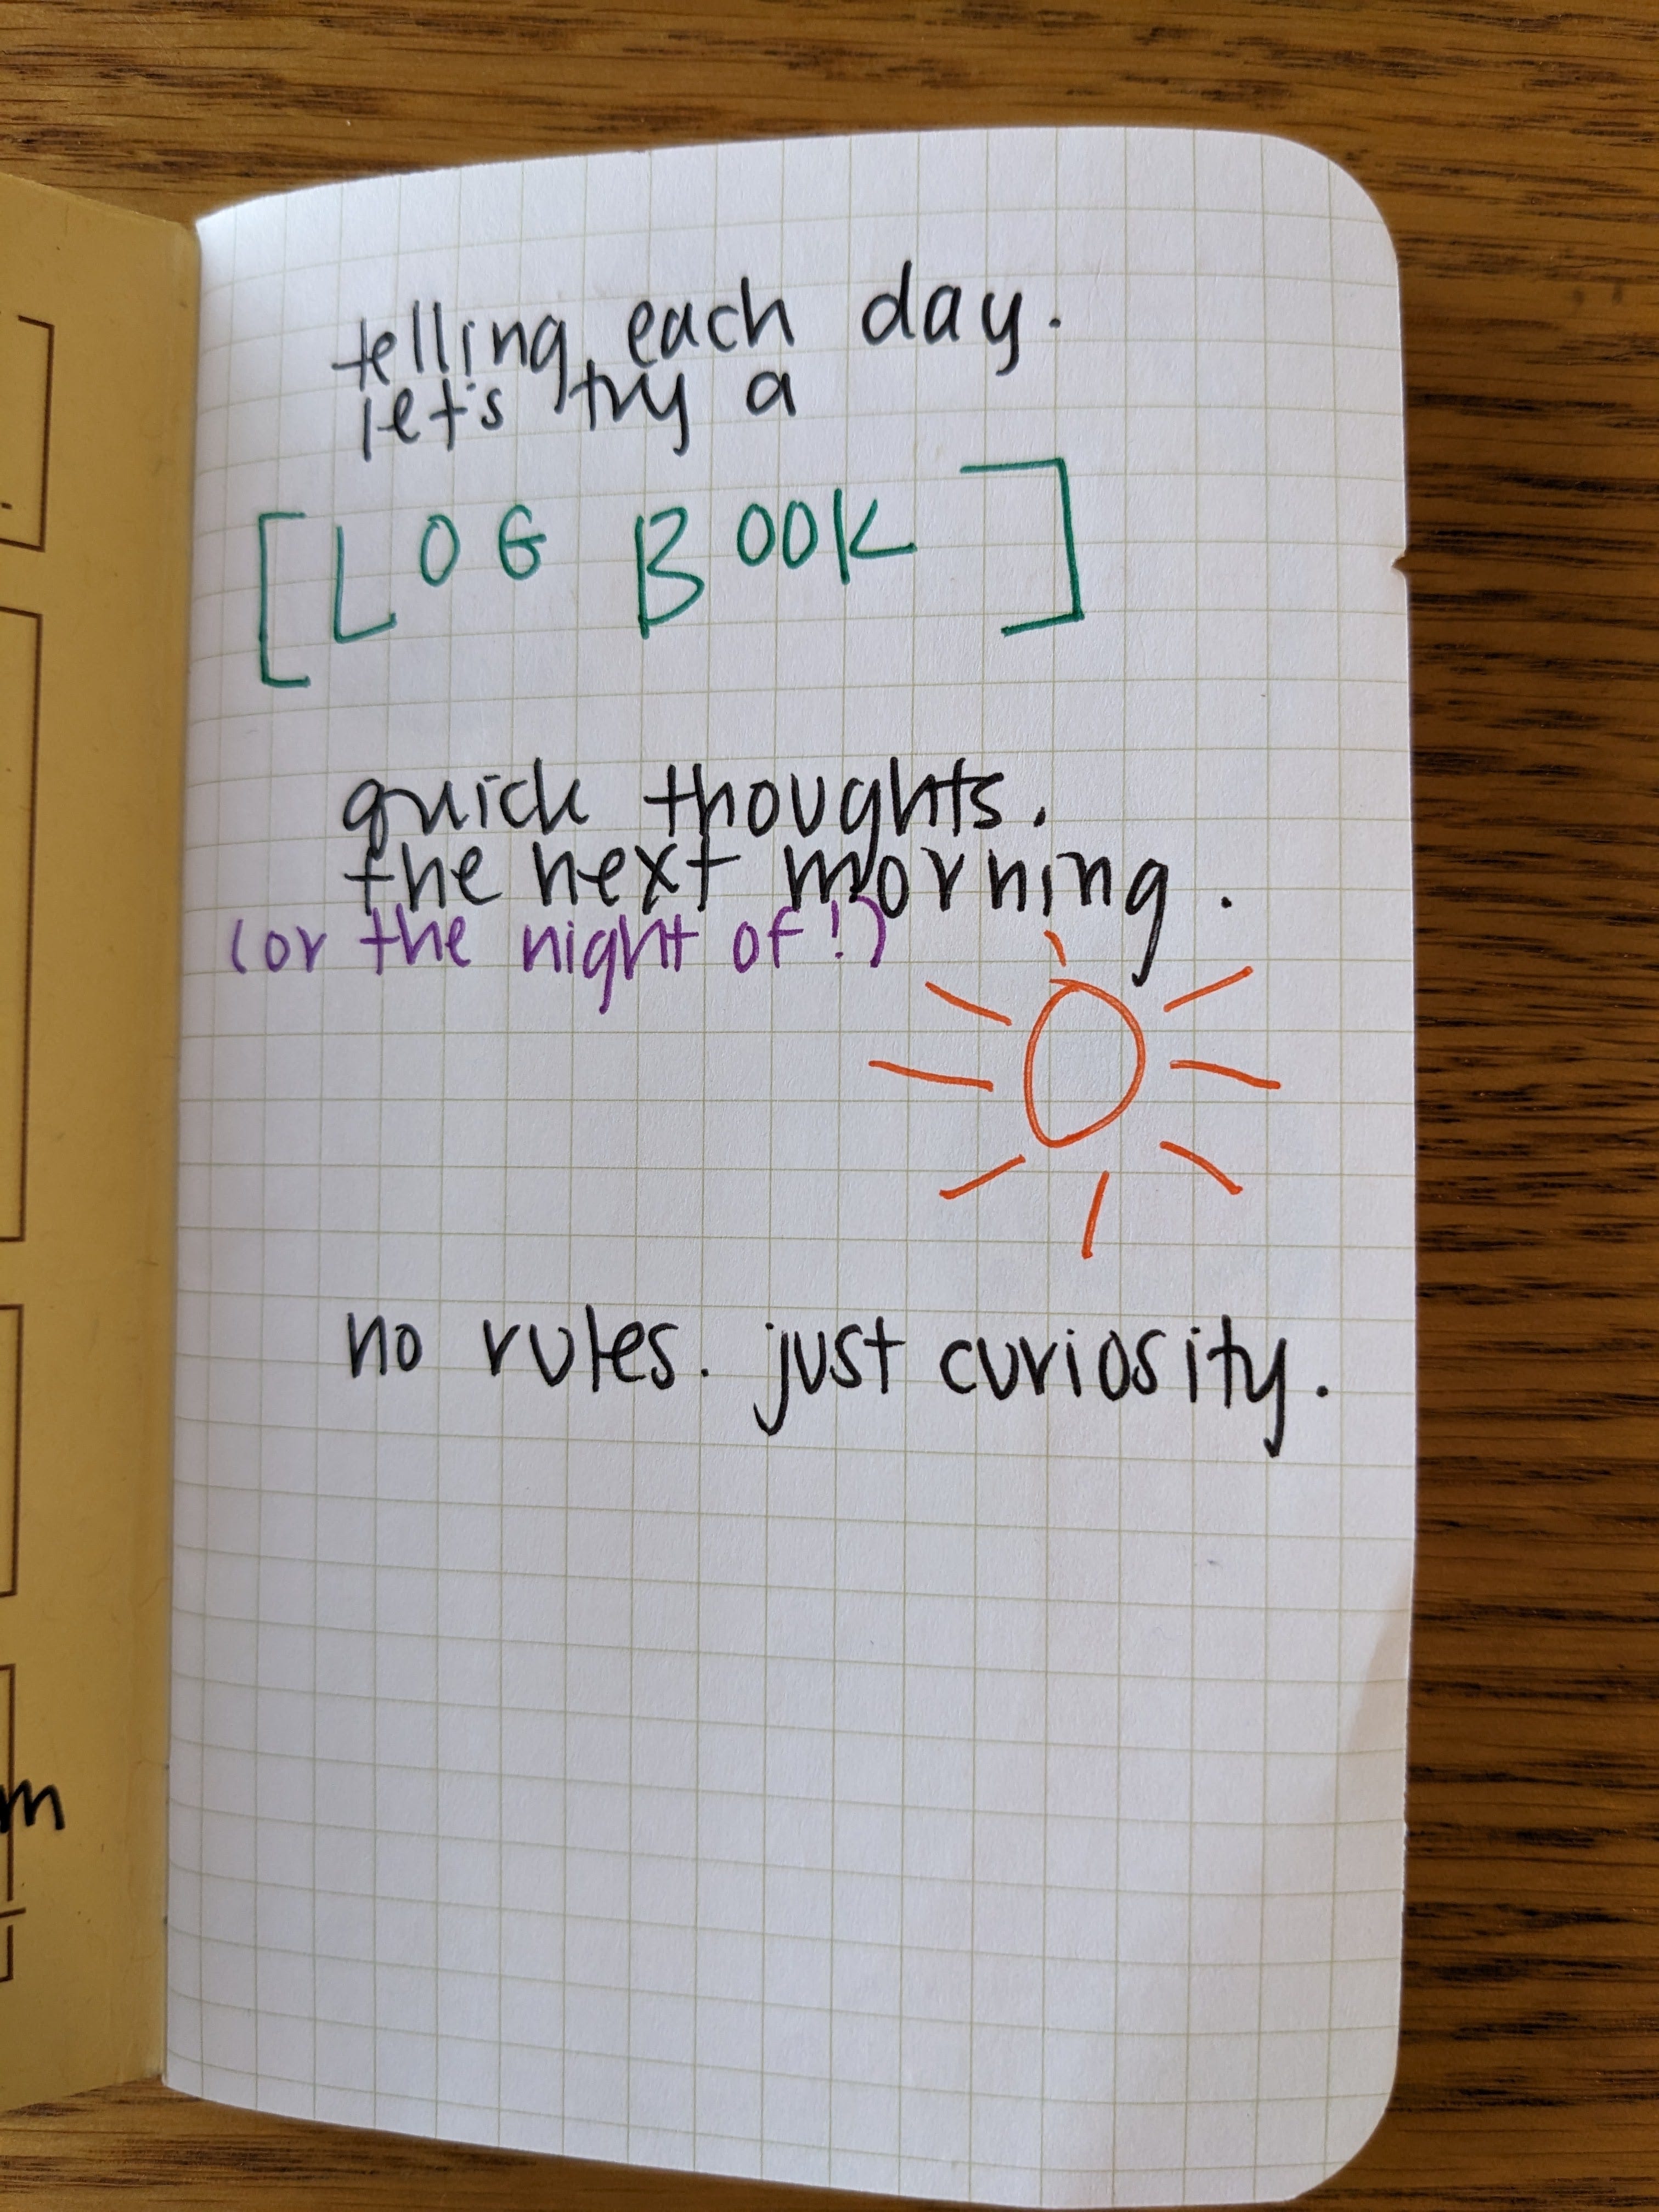 telling each day.
let's try a
[LOG BOOK]
quick thoughts.
the next morning.
(or the night of!)
no rules. just curiosity.
m